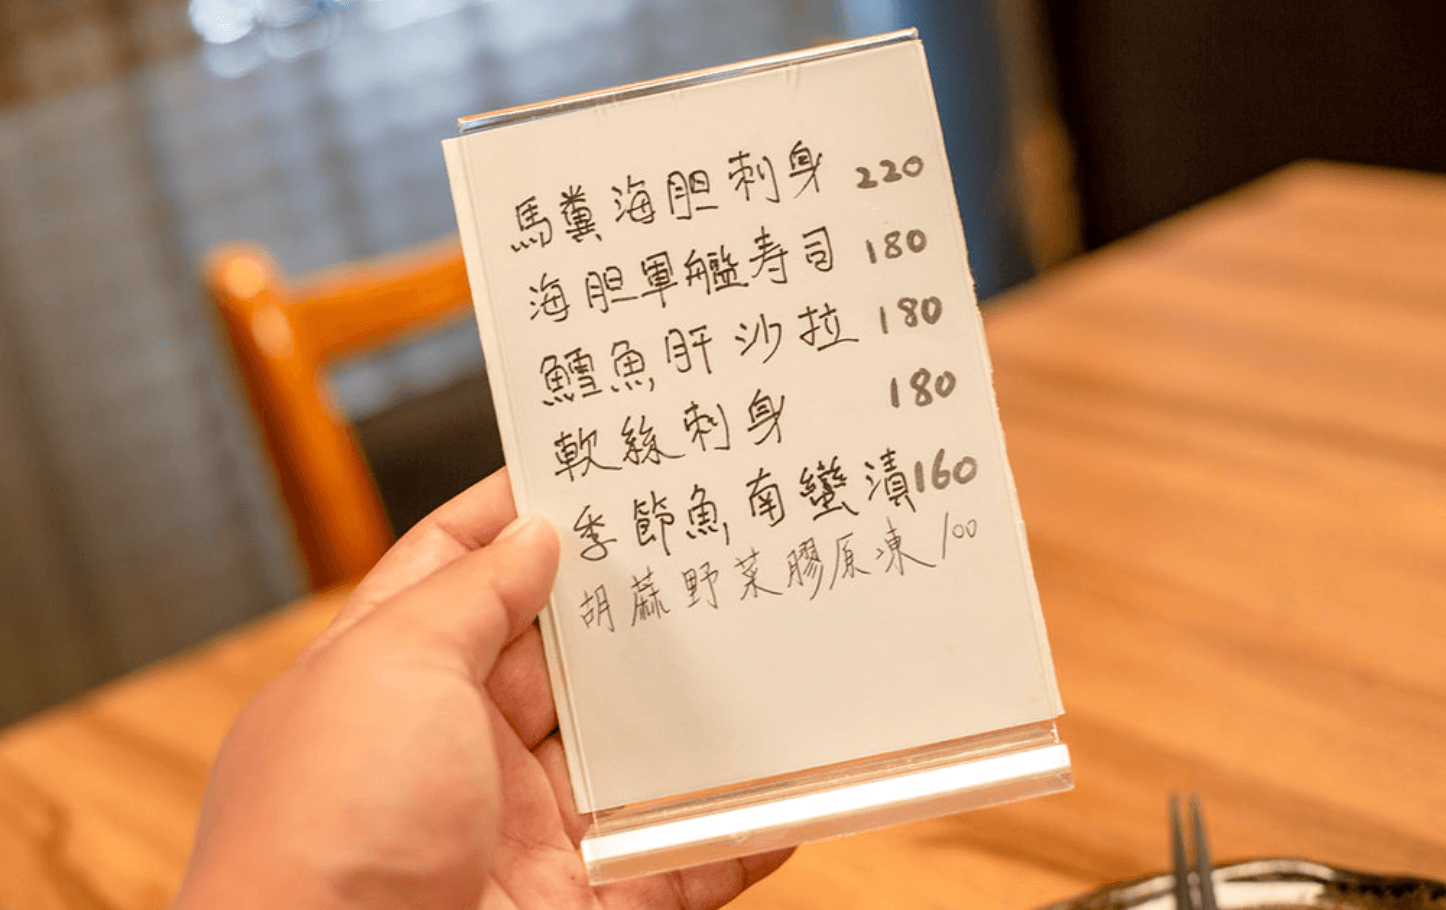 馬糞海胆刺身 220
海胆軍艦寿司 180
鱈魚肝沙拉 180
軟絲刺身 180
季節魚南蠻漬 160
胡蔴野菜膠原凍 100